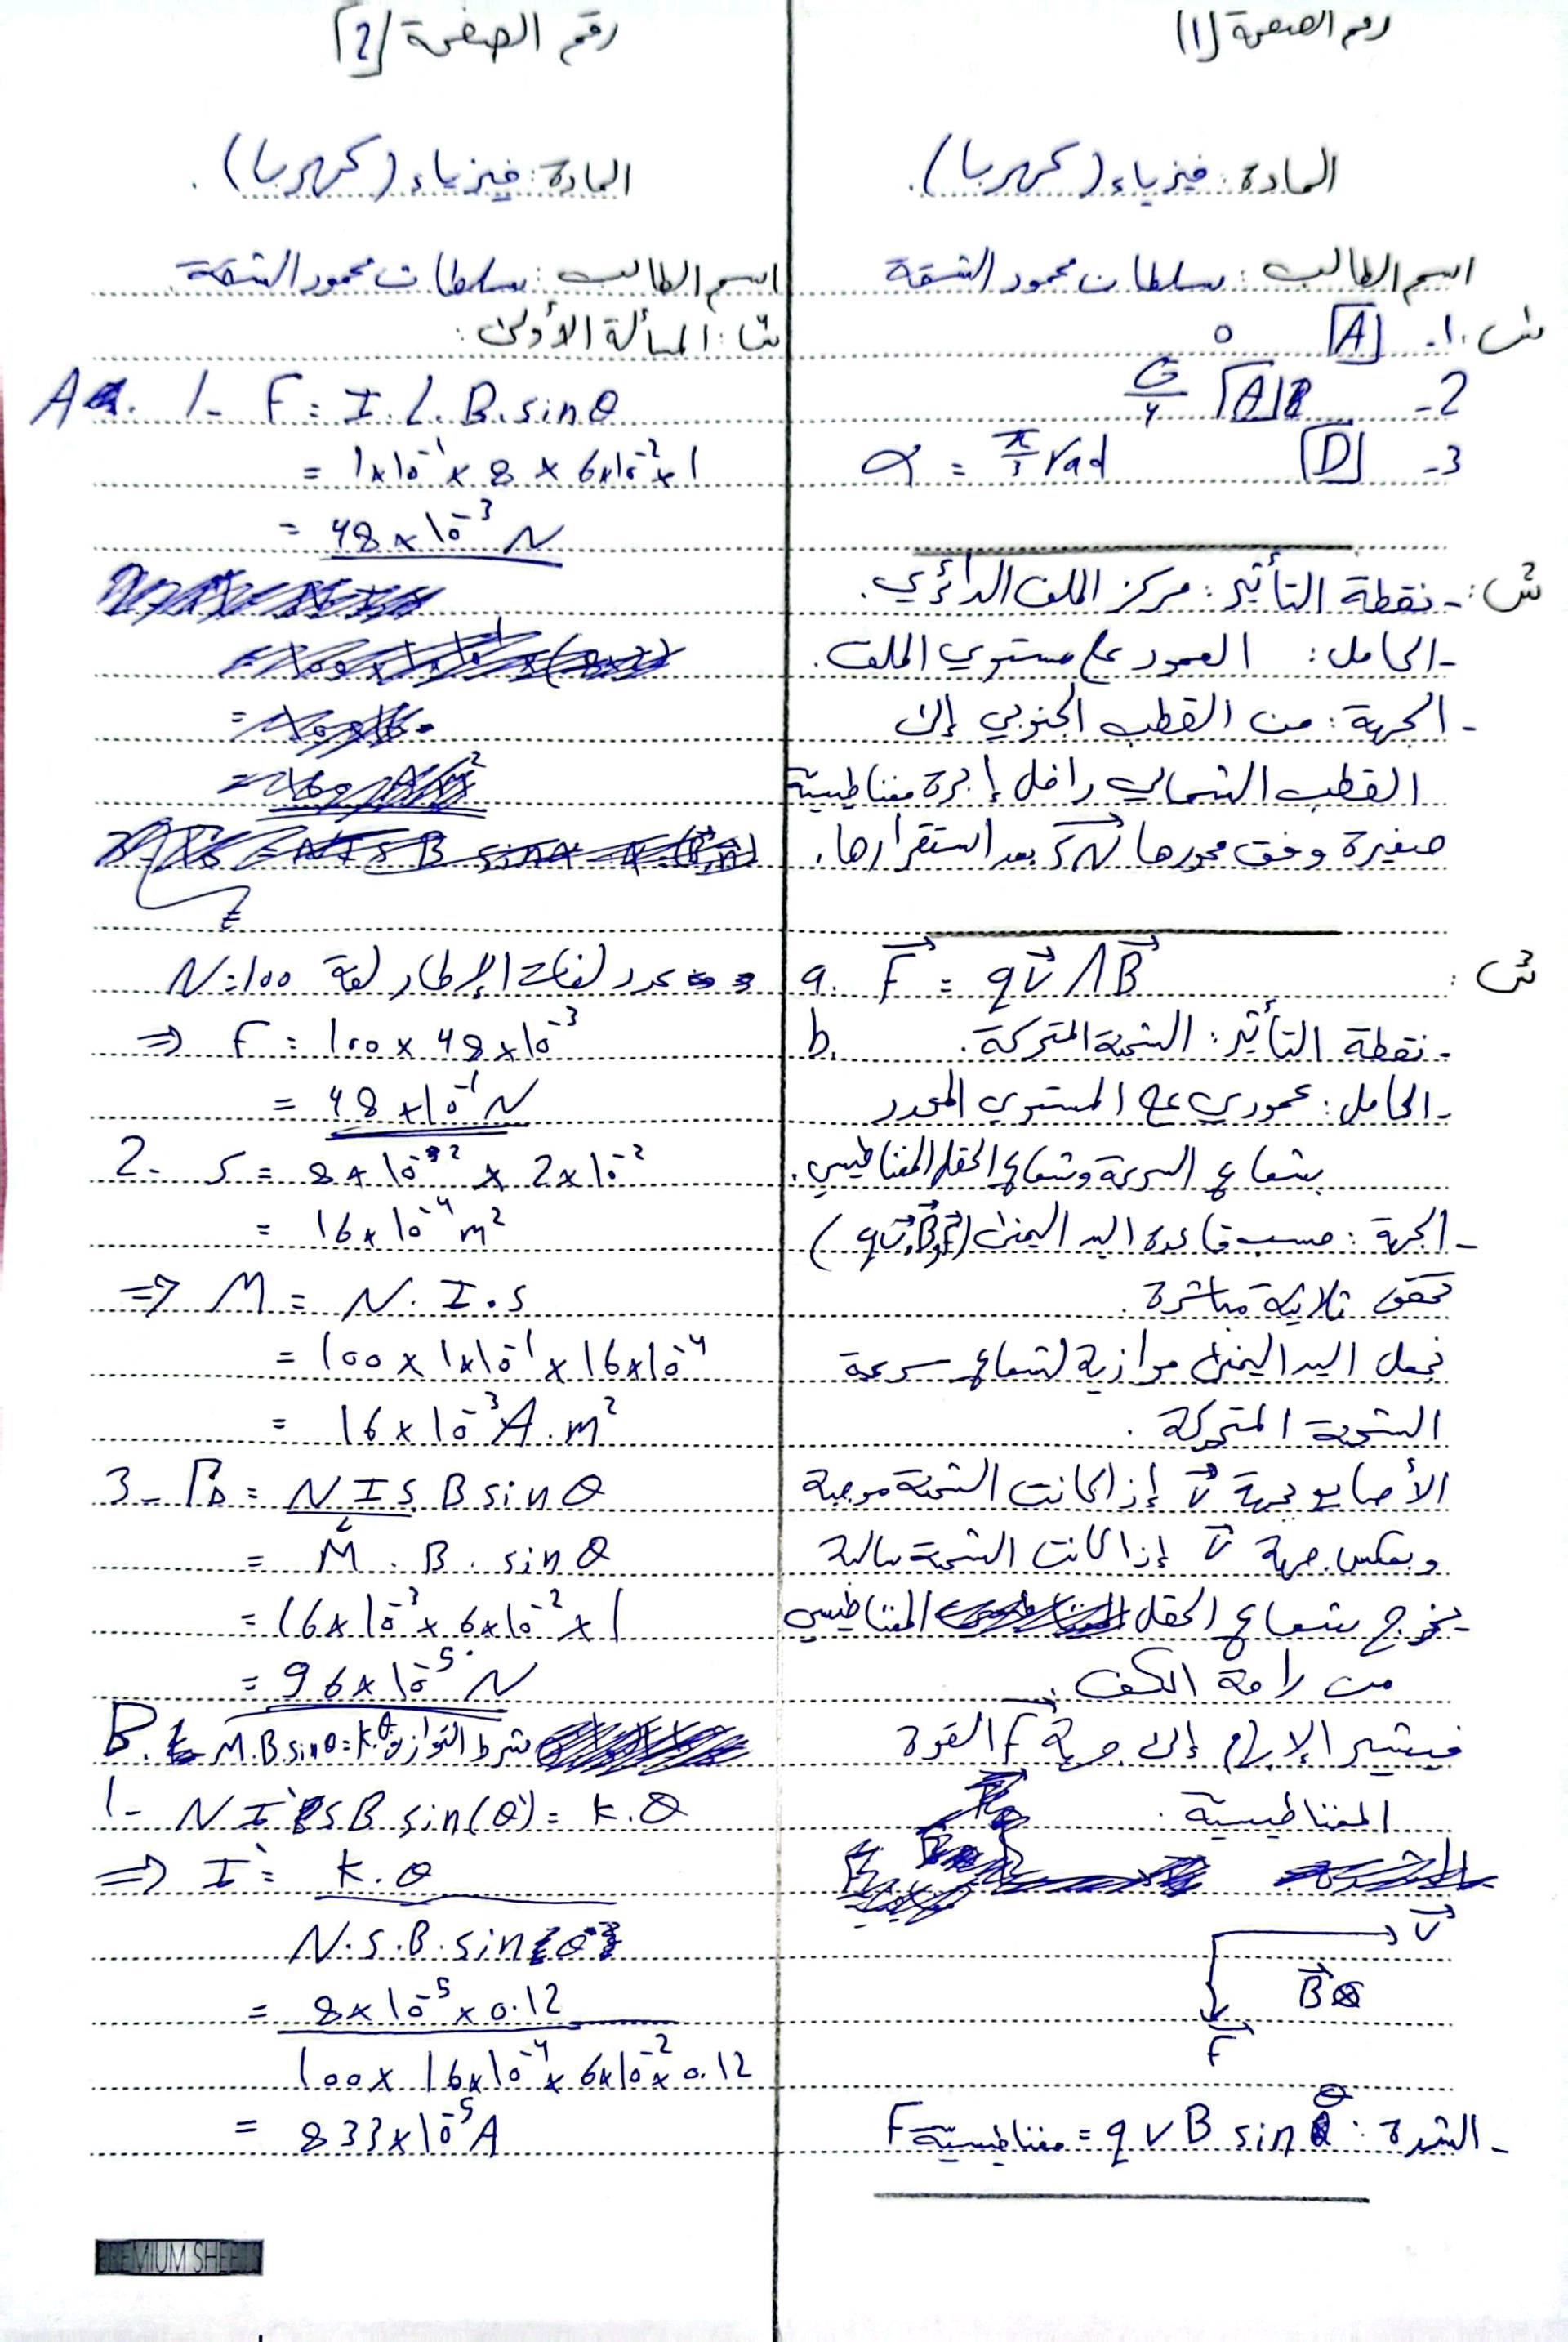 رقم الصفحة [1]
المادة: فيزياء (كهربا).
اسم الطالب: سلطان محمود الشقة
س1: 1- [A] 0
2- [A] G/4
3- [D] α = π/3 rad
س2: - نقطة التأثير: مركز الملف الدائري.
- الحامل: العمود على مستوي الملف.
- الجهة: من القطب الجنوبي إلى
القطب الشمالي داخل إبرة مغناطيسية
صغيرة وفق محورها SN بعد استقرارها.
س3: a. F = qv Λ B
b. - نقطة التأثير: الشحنة المتحركة.
- الحامل: عمودي على المستوي المحدد
بشعاع السرعة وشعاع الحقل المغناطيسي.
- الجهة: حسب قاعدة اليد اليمنى (qv, B, F)
تحقق ثلاثية مباشرة.
نجعل اليد اليمنى موازية لشعاع سرعة
الشحنة المتحركة.
الأصابع بجهة v إذا كانت الشحنة موجبة
وبعكس جهة v إذا كانت الشحنة سالبة
يخرج شعاع الحقل المغناطيسي
من راحة الكف.
فيشير الإبهام إلى جهة F القوة
المغناطيسية.
v
B ⊗
F
- الشدة: F مغناطيسية = q v B sin θ
رقم الصفحة [2]
المادة: فيزياء (كهربا).
اسم الطالب: سلطان محمود الشقة
س4: المسألة الأولى:
A. 1- F = I.L.B.sinθ
= 1×10⁻¹ × 8 × 6×10⁻² × 1
= 48×10⁻³ N
عدد لفات الإطار لفة N=100
⇒ F = 100 × 48×10⁻³
= 48×10⁻¹ N
2- s = 8×10⁻² × 2×10⁻²
= 16×10⁻⁴ m²
⇒ M = N.I.s
= 100 × 1×10⁻¹ × 16×10⁻⁴
= 16×10⁻³ A.m²
3- Γ_Δ = N I S B sinθ
= M . B . sinθ
= 16×10⁻³ × 6×10⁻² × 1
= 96×10⁻⁵ N
B. شرط التوازن M.B.sinθ = K.θ'
1- N I' S B sin(θ') = K.θ
⇒ I' = K.θ / N.S.B.sin θ'
= 8×10⁻⁵ × 0.12 / 100 × 16×10⁻⁴ × 6×10⁻² × 0.12
= 833×10⁻⁵ A
PREMIUM SHEETS